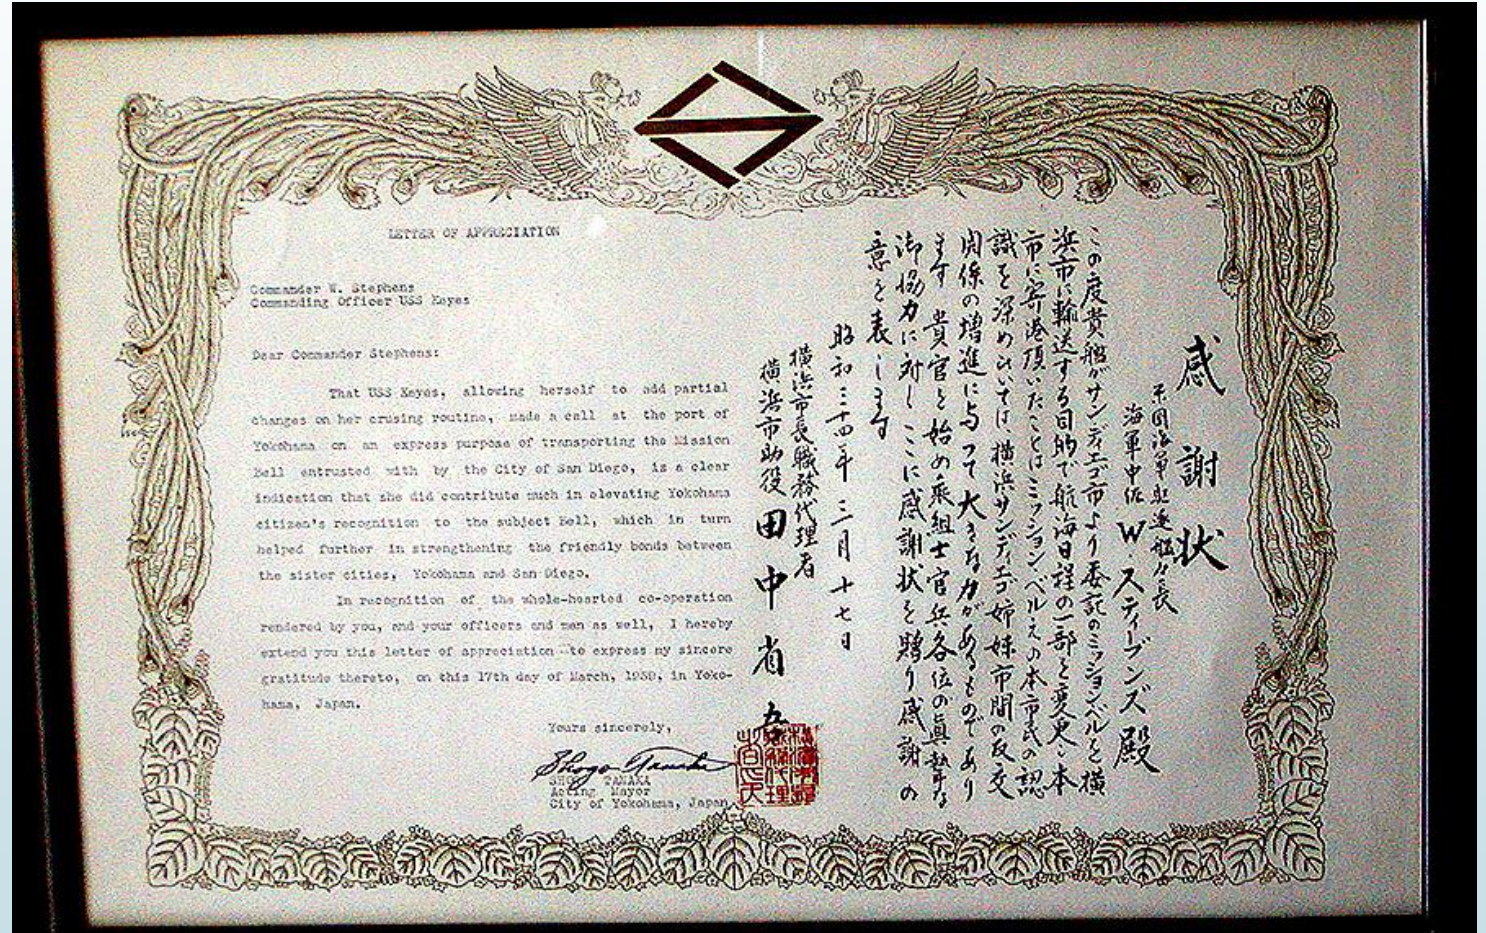 LETTER OF APPRECIATION
Commander W. Stephens
Commanding Officer USS Keyes
Dear Commander Stephens:
That USS Keyes, allowing herself to add partial
changes on her crusing routine, made a call at the port of
Yokohama on an express purpose of transporting the Mission
Bell entrusted with by the City of San Diego, is a clear
indication that she did contribute much in elevating Yokohama
citizen's recognition to the subject Bell, which in turn
helped further in strengthening the friendly bonds between
the sister cities, Yokohama and San Diego.
In recognition of the whole-hearted co-operation
rendered by you, and your officers and men as well, I hereby
extend you this letter of appreciation to express my sincere
gratitude thereto, on this 17th day of March, 1959, in Yoko-
hama, Japan.
Yours sincerely,
Shogo Tanaka
SHOGO TANAKA
Acting Mayor
City of Yokohama, Japan
感謝状
米国海軍駆逐艦々長
海軍中佐 W・スティーブンズ殿
この度貴艦がサンディエゴ市より委託のミッションベルを横
浜市に輸送する目的で航海日程の一部を変更し本
市に寄港頂いたことはミッションベルえの本市民の認
識を深めひいては横浜サンディエゴ姉妹市間の友交
関係の増進に与って大きな力があるものであり
ます 貴官を始め乗組士官兵各位の眞摯な
御協力に対しここに感謝状を贈り感謝の
意を表します
昭和三十四年三月十七日
横浜市長職務代理者
横浜市助役 田中省吾